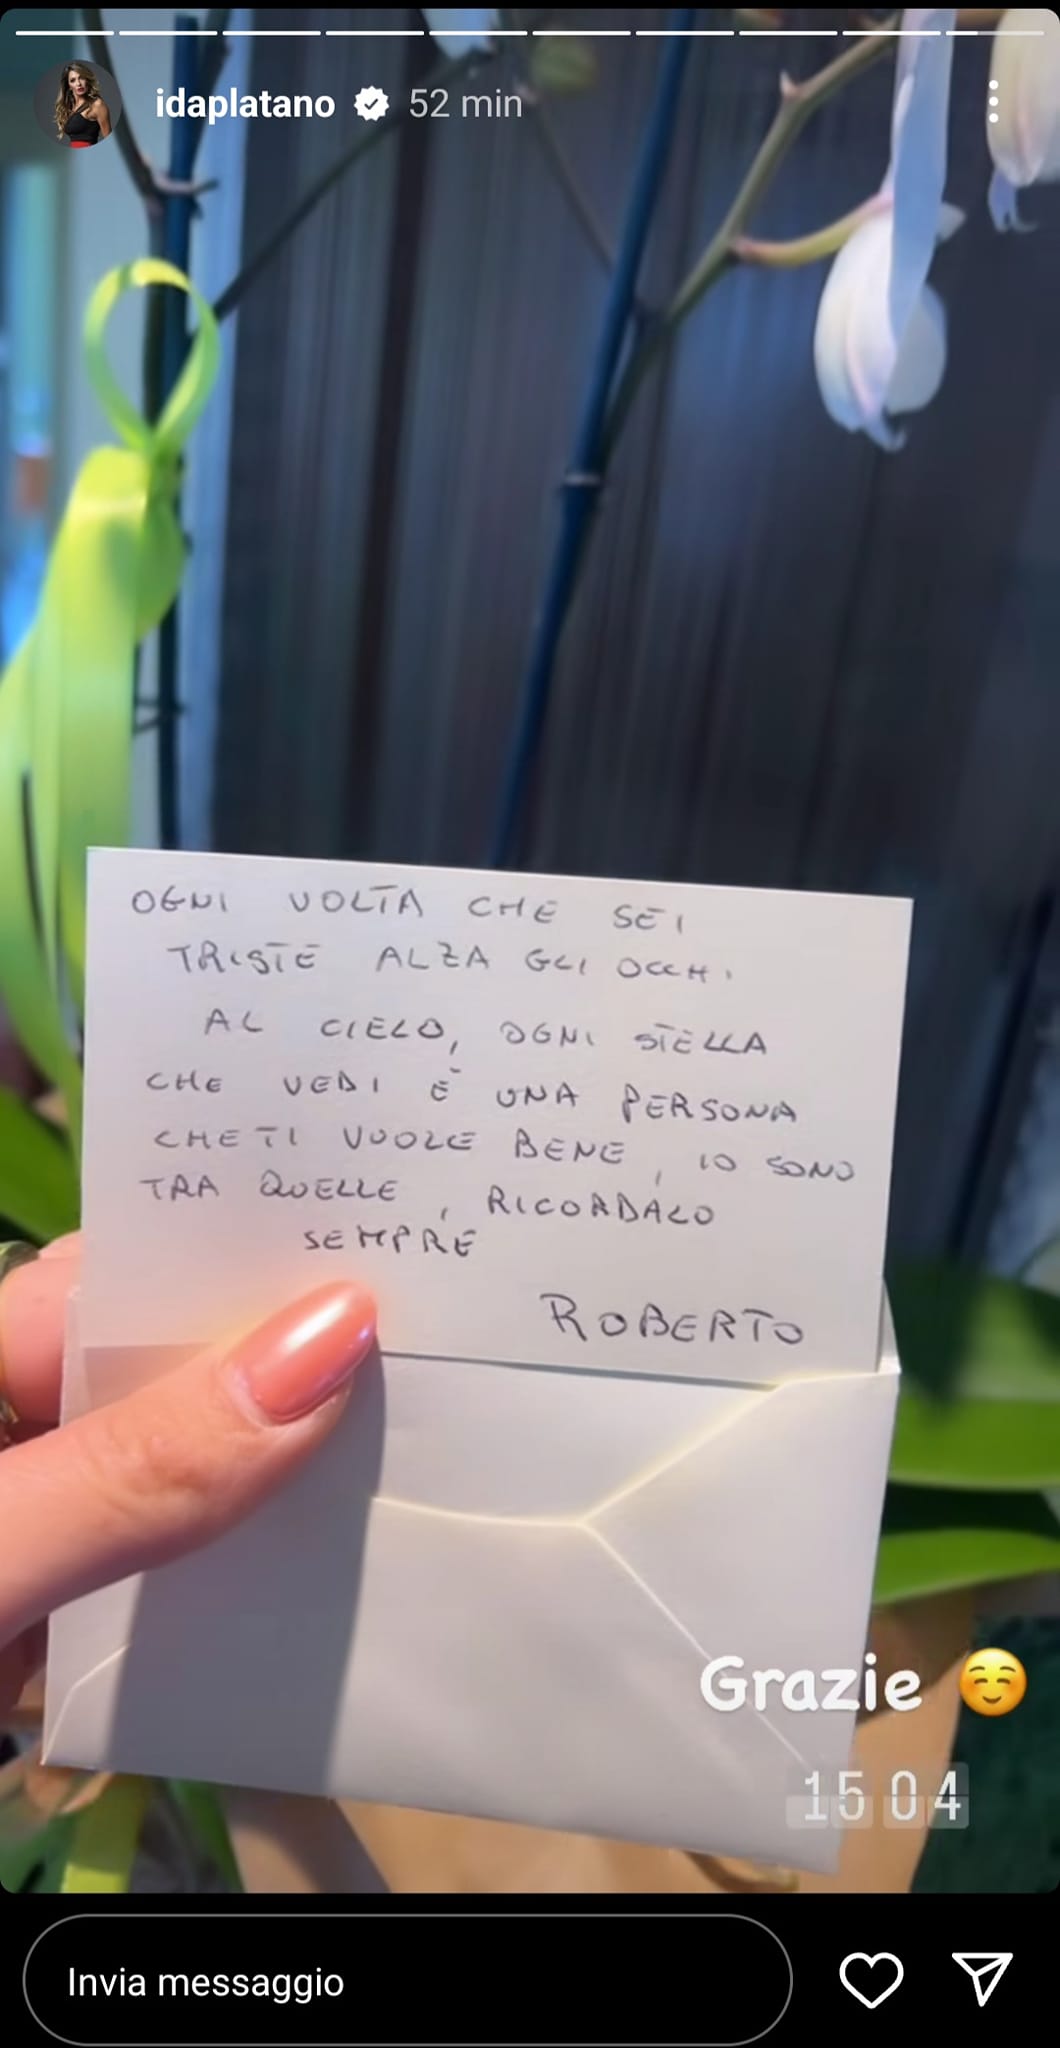 idaplatano 52 min
OGNI VOLTA CHE SEI
TRISTE ALZA GLI OCCHI
AL CIELO, OGNI STELLA
CHE VEDI È UNA PERSONA
CHE TI VUOLE BENE, IO SONO
TRA QUELLE, RICORDALO
SEMPRE
ROBERTO
Grazie ☺️
15 04
Invia messaggio